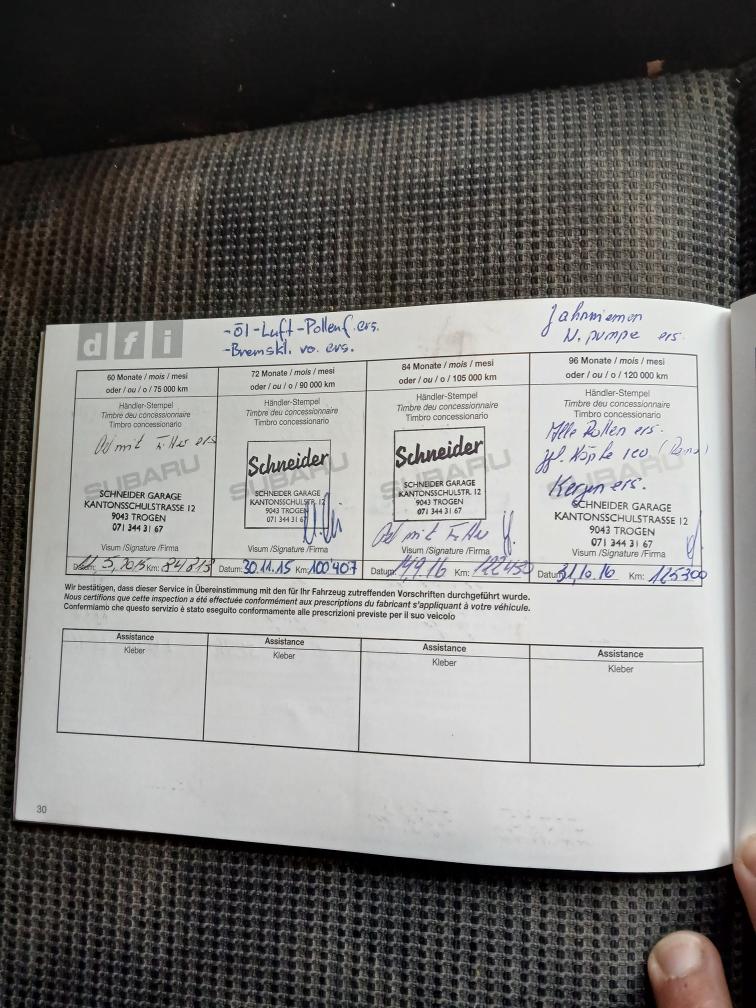 d f i
-Öl-Luft-Pollenf. ers.
-Bremskl. vo. ers.
Zahnriemen
W. pumpe ers.
60 Monate / mois / mesi
oder / ou / o / 75 000 km
Händler-Stempel
Timbre du concessionnaire
Timbro concessionario
Oel mit Filter ers
SUBARU
SCHNEIDER GARAGE
KANTONSSCHULSTRASSE 12
9043 TROGEN
071 344 31 67
Visum /Signature /Firma
Datum: 5, 2015 Km:
72 Monate / mois / mesi
oder / ou / o / 90 000 km
Händler-Stempel
Timbre du concessionnaire
Timbro concessionario
SUBARU
Schneider
SCHNEIDER GARAGE
KANTONSSCHULSTR. 12
9043 TROGEN
071 344 31 67
Visum /Signature /Firma
Datum: 30.11.15 Km: 100'407
84 Monate / mois / mesi
oder / ou / o / 105 000 km
Händler-Stempel
Timbre du concessionnaire
Timbro concessionario
SUBARU
Schneider
SCHNEIDER GARAGE
KANTONSSCHULSTR. 12
9043 TROGEN
071 344 31 67
Oel mit Filter
Visum /Signature /Firma
Datum: Km: 122450
96 Monate / mois / mesi
oder / ou / o / 120 000 km
Händler-Stempel
Timbre du concessionnaire
Timbro concessionario
Alle Rollen ers.
Kerzen ers.
SUBARU
SCHNEIDER GARAGE
KANTONSSCHULSTRASSE 12
9043 TROGEN
071 344 31 67
Visum /Signature /Firma
Datum: 31.10.16 Km: 125300
Wir bestätigen, dass dieser Service in Übereinstimmung mit den für Ihr Fahrzeug zutreffenden Vorschriften durchgeführt wurde.
Nous certifions que cette inspection a été effectuée conformément aux prescriptions du fabricant s'appliquant à votre véhicule.
Confermiamo che questo servizio è stato eseguito conformamente alle prescrizioni previste per il suo veicolo
Assistance
Kleber
Assistance
Kleber
Assistance
Kleber
Assistance
Kleber
30